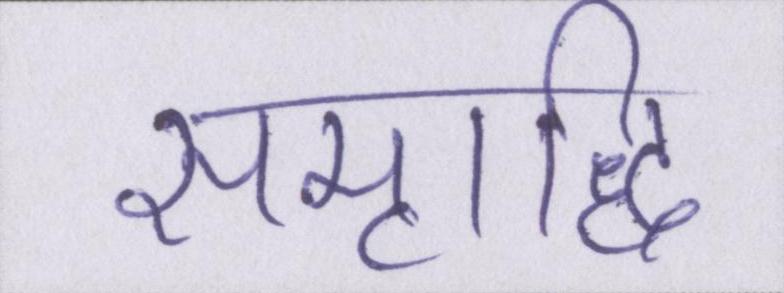 समृाद्धि